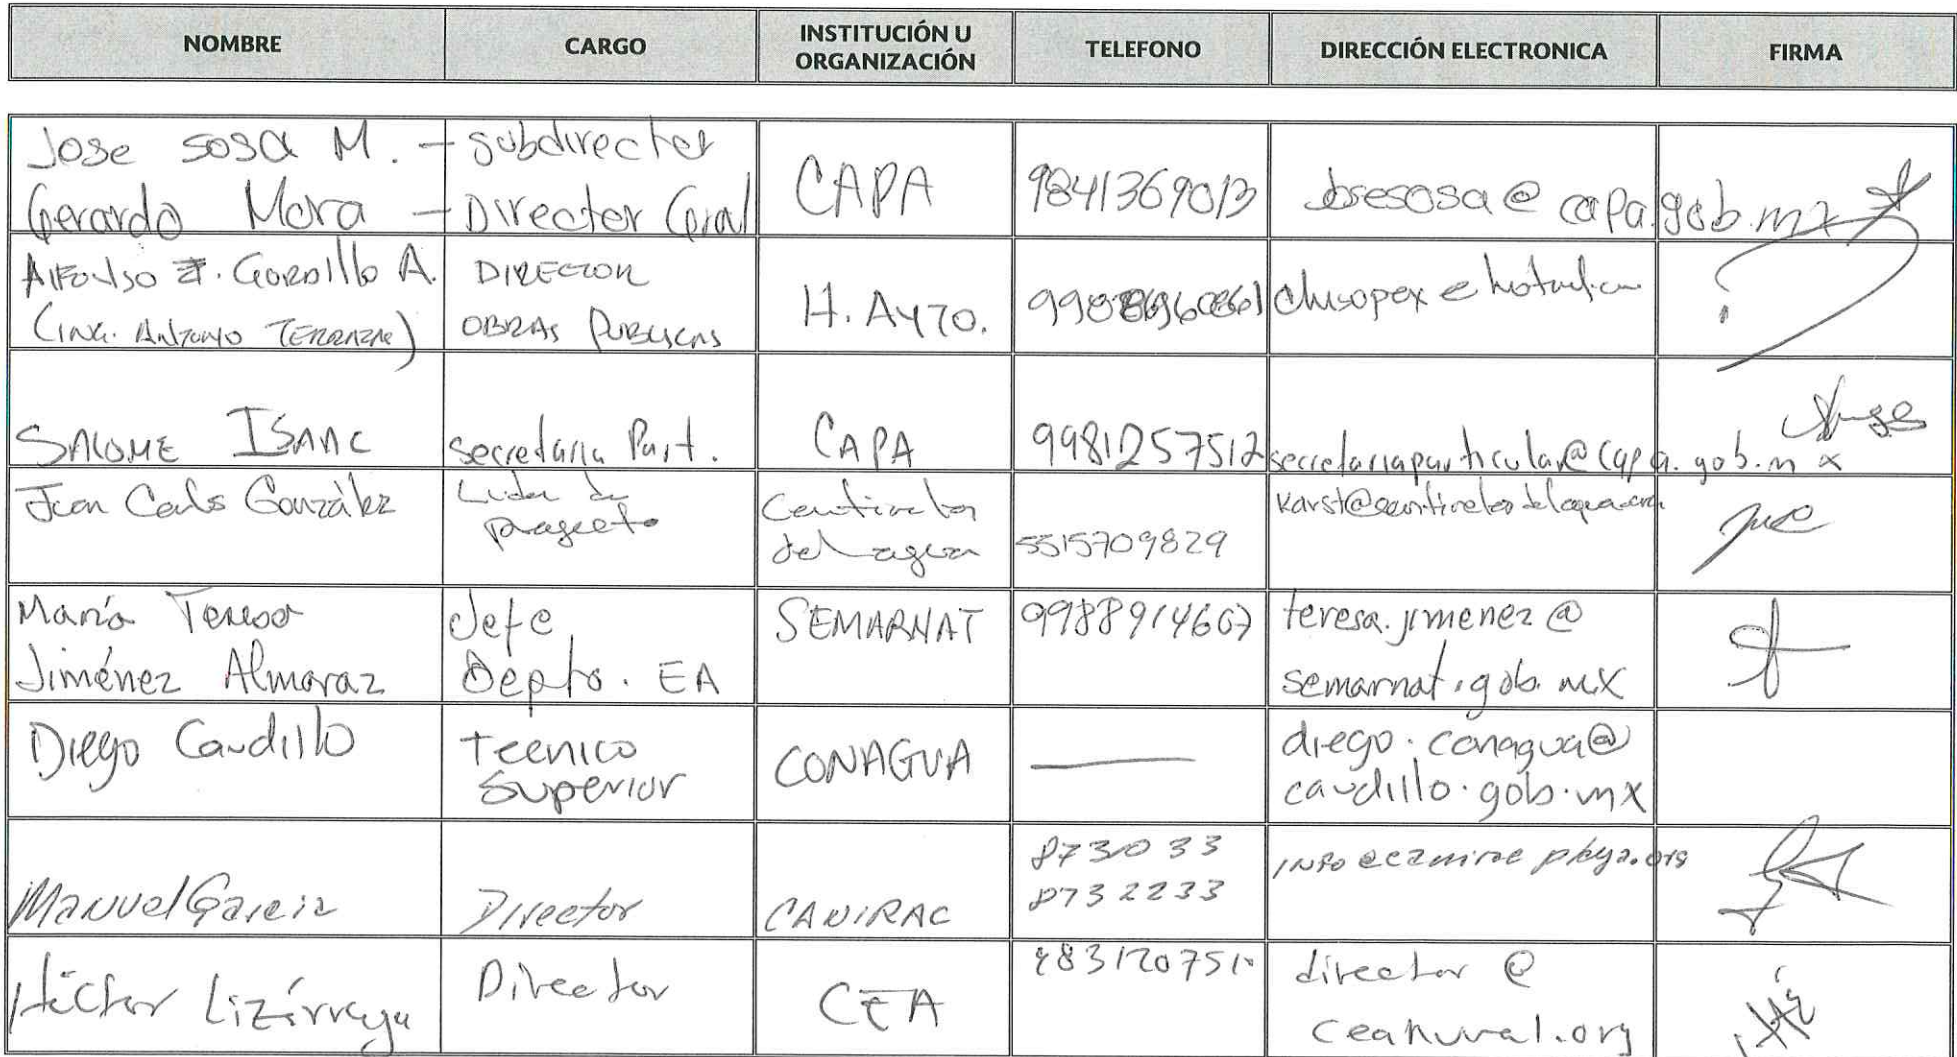 NOMBRE
CARGO
INSTITUCIÓN U
ORGANIZACIÓN
TELEFONO
DIRECCIÓN ELECTRONICA
FIRMA
Jose Sosa M. - Subdirector
Gerardo Mora - Director Gral
CAPA
9841369013
josesosa@capa.gob.mx
Alfonso J. Gordillo A.
(ING. ANTONIO TERRAZAS)
DIRECTOR
OBRAS PUBLICAS
H. AYTO.
SALOME ISAAC
Secretaria Part.
CAPA
9981257512
secretariaparticular@capa.gob.mx
Juan Carlos González
Lider de
proyecto
Centinelas
del agua
5515709829
karst@centinelasdelagua.org
María Teresa
Jiménez Almaraz
Jefe
Depto. EA
SEMARNAT
9988914607
teresa.jimenez@
semarnat.gob.mx
Diego Caudillo
Tecnico
Superior
CONAGUA
diego.conagua@
caudillo.gob.mx
Manuel Garcia
Director
CANIRAC
873 10 33
873 2233
Héctor Lizárraga
Director
CEA
director @
ceakuxal.org